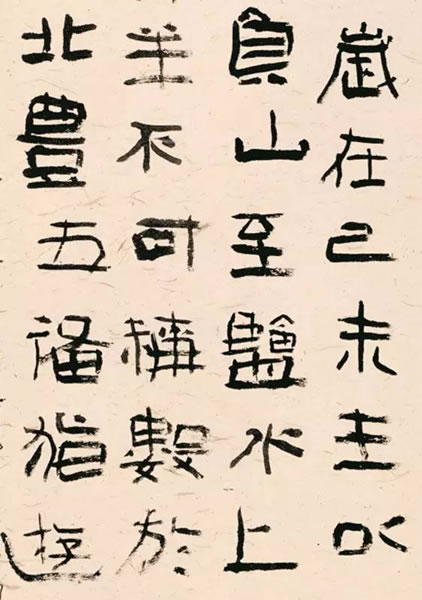 歲在己未主以
員山至鹽水上
羊不可稱數於
北豊五福指遊